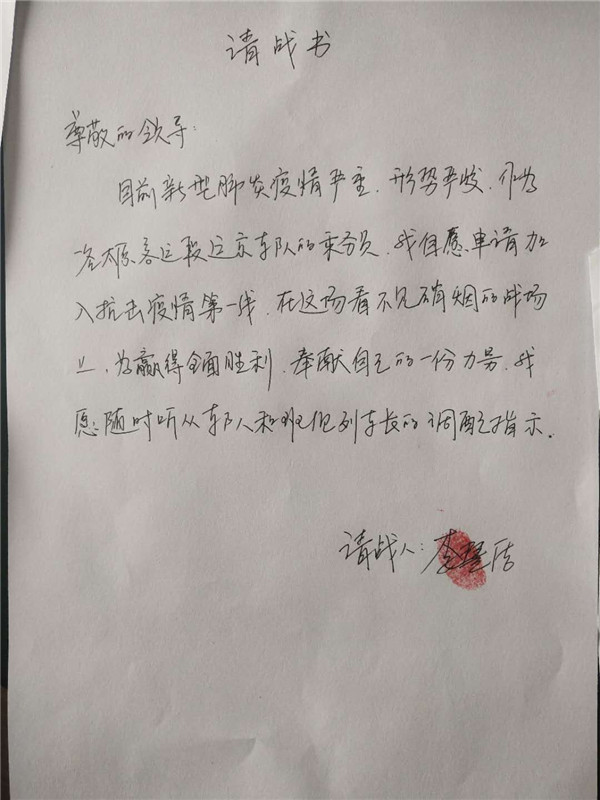 请战书
尊敬的领导:
目前新型肺炎疫情严重，形势严峻，作为
太原客运段运京车队的乘务员，我自愿申请加
入抗击疫情第一线，在这场看不见硝烟的战场
上，为赢得全面胜利，奉献自己的一份力量，我
愿随时听从车队和班组列车长的调配指示。
请战人:李